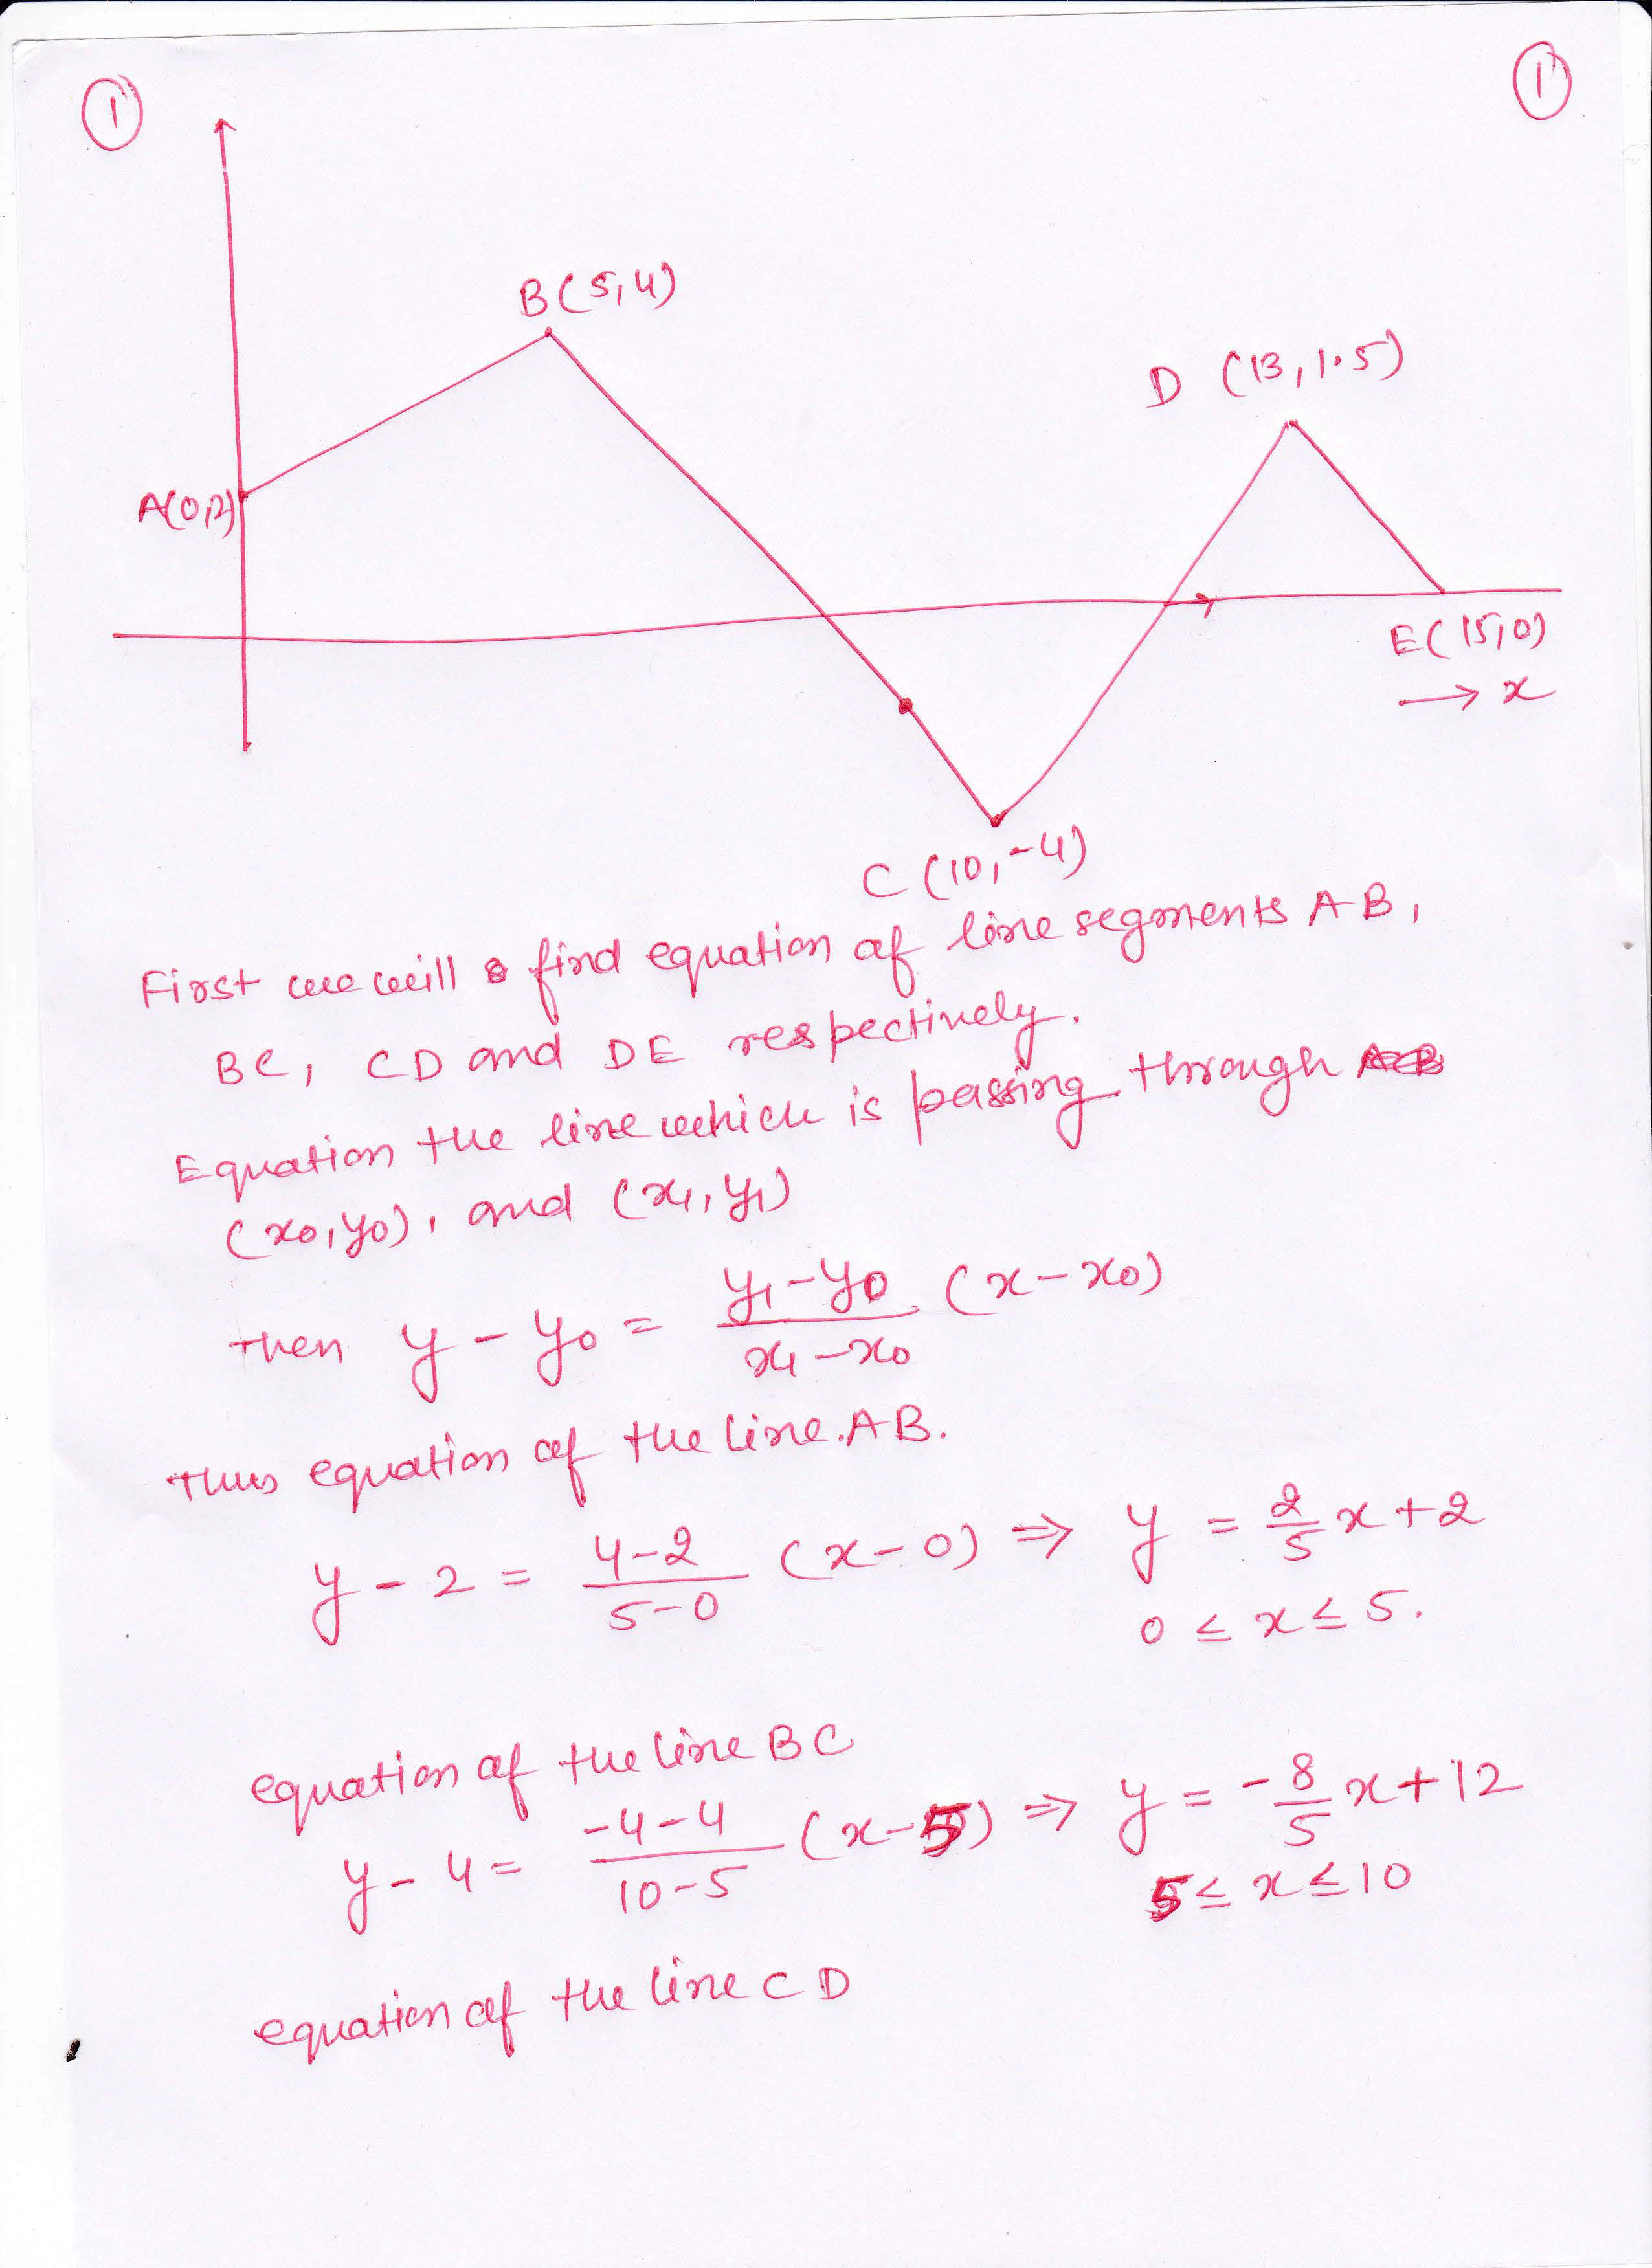 1
1
B(5,4)
D (13,1.5)
A(0,2)
E(15,0)
→ x
C (10,-4)
First we will find equation of line segments AB,
BC, CD and DE respectively.
Equation the line which is passing through
(x₀,y₀), and (x₁,y₁)
then y - y₀ = (y₁-y₀)/(x₁-x₀) (x-x₀)
Thus equation of the line.AB.
y - 2 = (4-2)/(5-0) (x-0) ⇒ y = 2/5 x+2
0 ≤ x ≤ 5.
equation of the line BC
y - 4 = (-4-4)/(10-5) (x-5) ⇒ y = -8/5 x+12
5 ≤ x ≤ 10
equation of the line CD